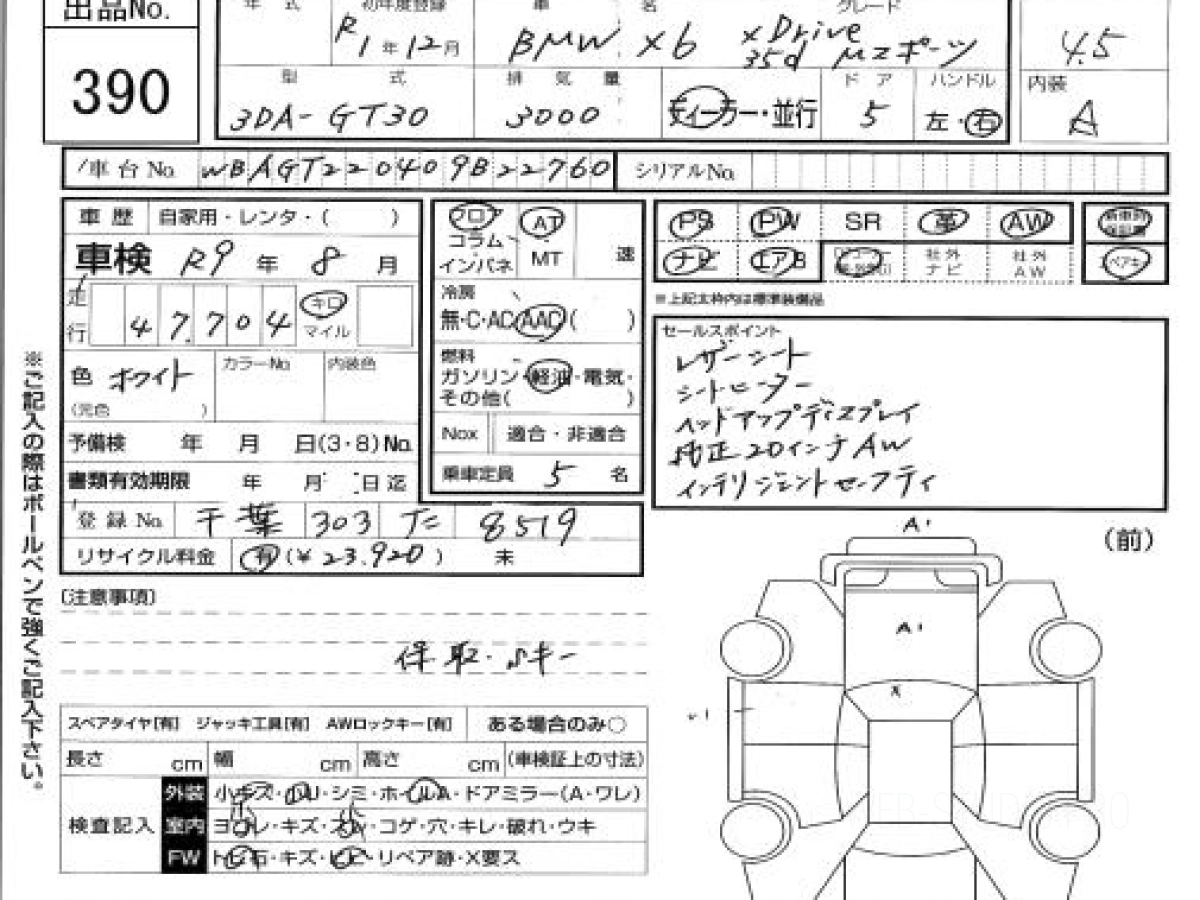 出品No.
390
年式 初年度登録 車名 グレード
R1年12月 BMW X6 xDrive 35d Mスポーツ
4.5
型式 排気量 ドア ハンドル 内装
3DA-GT30 3000 ディーラー・並行 5 左・右 A
車台No. WBAGT220409B22760 シリアルNo.
車歴 自家用・レンタ・( )
車検 R9年 8月
走行 47,704 キロ マイル
色 ホワイト カラーNo. 内装色
(元色 )
予備検 年 月 日(3・8)No.
書類有効期限 年 月 日迄
登録No. 千葉 303 た 8519
リサイクル料金 有(¥23,920) 未
フロア
コラム
インパネ
AT
MT 速
冷房
無・C・AC・AAC( )
燃料
ガソリン・軽油・電気・
その他( )
Nox 適合・非適合
乗車定員 5 名
PS PW SR 革 AW 新車時保証書
ナビ エアB 社外ナビ 社外AW スペアキー
※上記太枠内は標準装備品
セールスポイント
レザーシート
シートヒーター
ヘッドアップディスプレイ
純正20インチAW
インテリジェントセーフティ
※ご記入の際はボールペンで強くご記入下さい。
〔注意事項〕
保、取、Sキー
スペアタイヤ[有] ジャッキ工具[有] AWロックキー[有] ある場合のみ○
長さ cm 幅 cm 高さ cm (車検証上の寸法)
検査記入
外装 小キズ・凹・シミ・ホイルA・ドアミラー(A・ワレ)
室内 ヨゴレ・キズ・スレ・コゲ・穴・キレ・破れ・ウキ
FW トビ石・キズ・ヒビ・リペア跡・X要ス
(前)
A1
A1
X